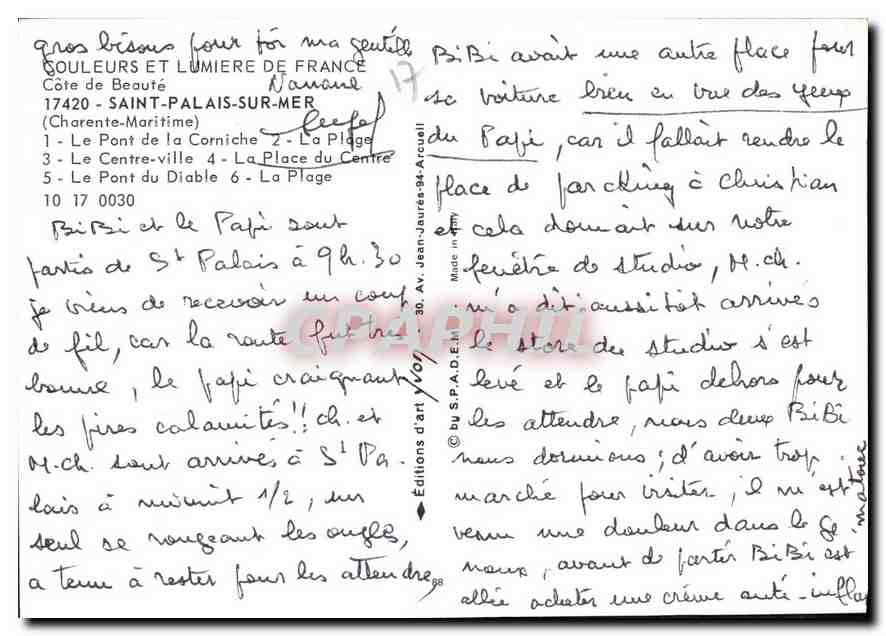 gros bisous pour toi ma gentille
COULEURS ET LUMIERE DE FRANCE
Côte de Beauté
Nanane
17
17420 - SAINT-PALAIS-SUR-MER
(Charente-Maritime)
1 - Le Pont de la Corniche 2 - La Plage
3 - Le Centre-ville 4 - La Place du Centre
5 - Le Pont du Diable 6 - La Plage
10 17 0030
BiBi et le Papi sont
partis de St Palais à 9h.30
je viens de recevoir un coup
de fil, car la route fut très
bonne, le papi craignant
les pires calamités!! ch. et
M.ch. sont arrivés à St Pa-
lais à minuit 1/2, un
seul se rongeant les ongles,
a tenu à rester pour les attendre,
68
Editions d'art YVON 30, Av. Jean-Jaurès-94-Arcueil
© by S.P.A.D.E.M. Made in Italy
BiBi avait une autre place pour
sa voiture bien en vue des yeux
du Papi, car il fallait rendre le
place de parcking à Christian
et cela donnait sur notre
fenêtre de studio, M.ch.
m'a dit: aussitôt arrivés
le store du studio s'est
levé et le papi dehors pour
les attendre, nous deux BiBi
nous dormions; d'avoir trop
marché pour visiter, il m'est
venu une douleur dans le ge
noux, avant de partir BiBi est
allée acheter une crème anti-infla
matoire
CPAPHIL